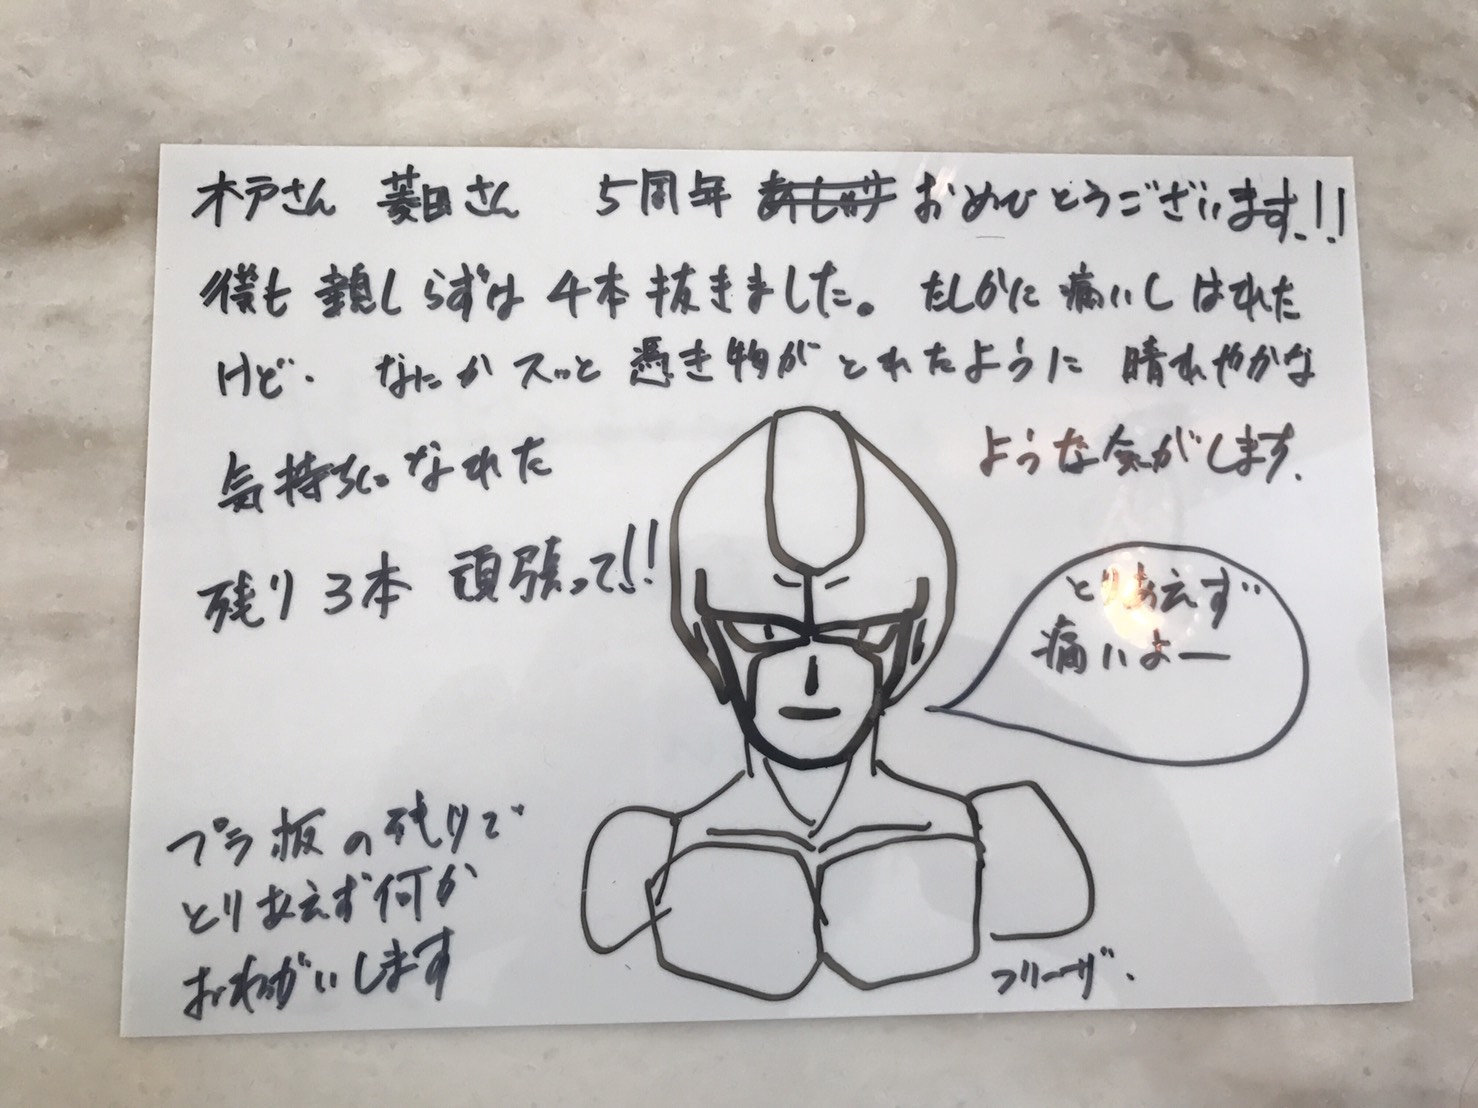 木戸さん 菱田さん 5周年 おめでとうございます!!
僕も親しらずは4本抜きました。たしかに痛いしはれた
けど、なにかスッと憑き物がとれたように晴れやかな
気持ちになれた ような気がします。
残り3本 頑張って!!
とりあえず
痛いよー
プラ板の残りで
とりあえず何か
おねがいします
フリーザ.